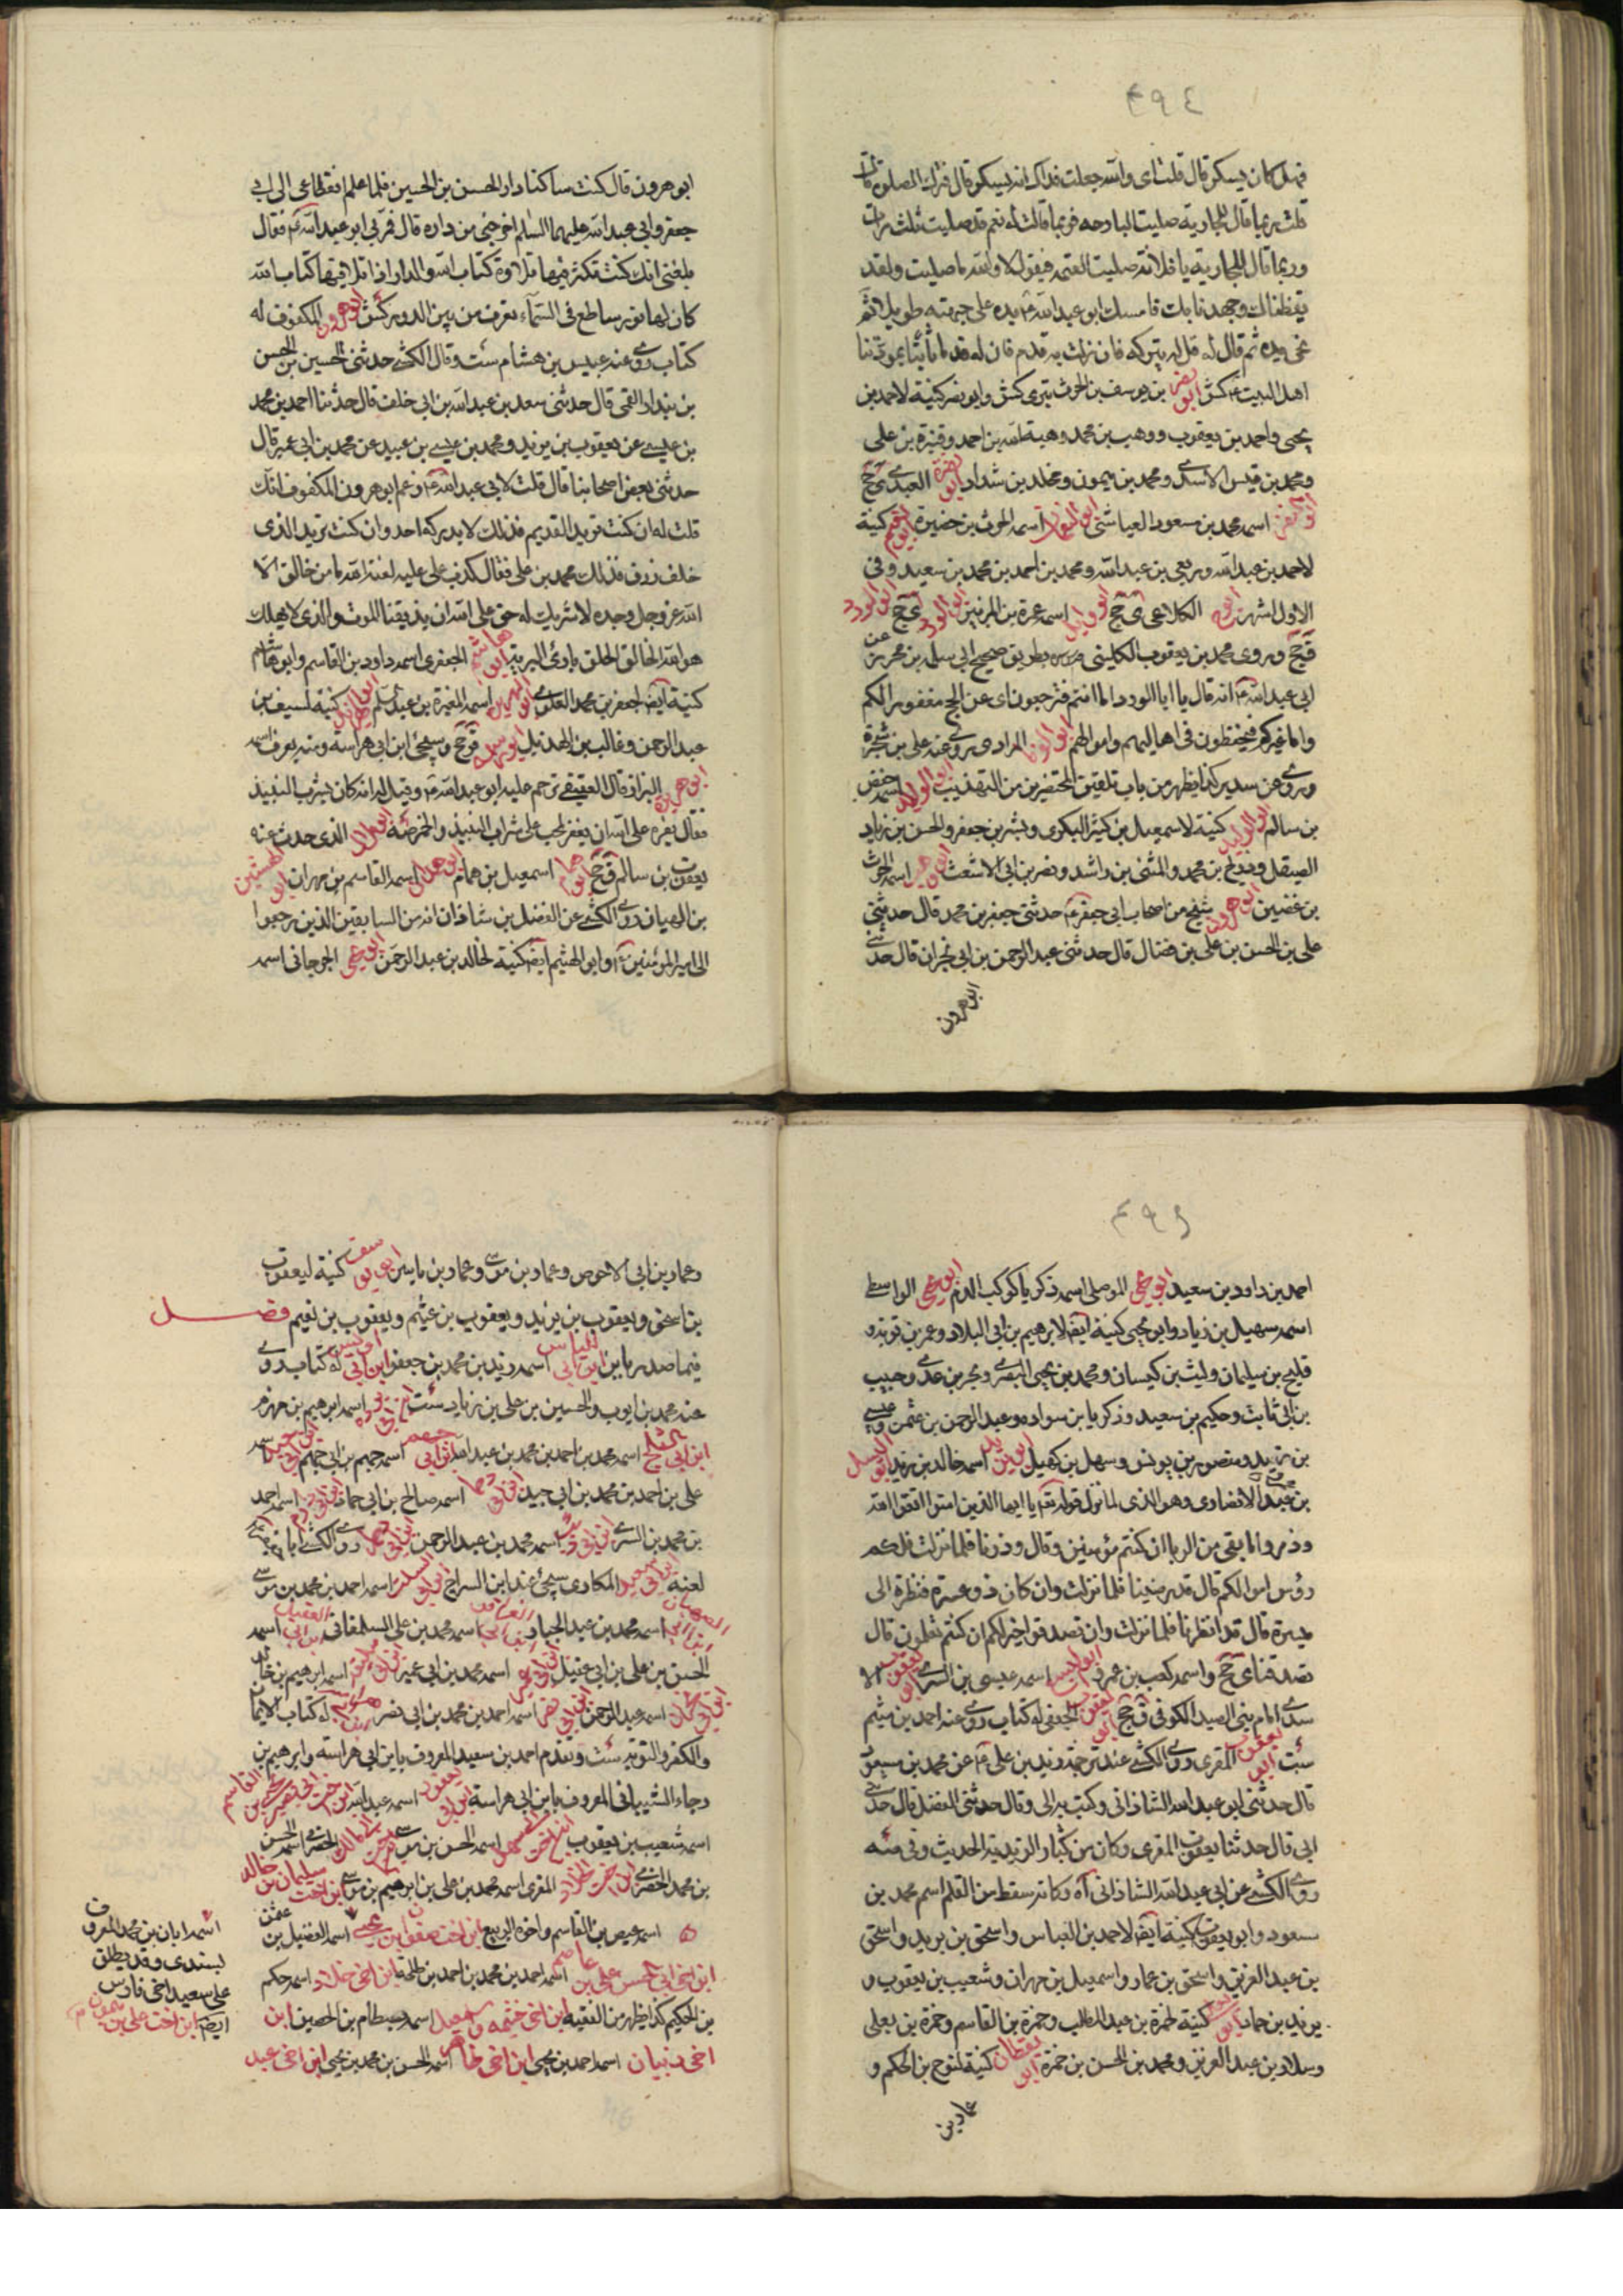 ٤٩٤
فهل كان يسكر قال قلت اى والله جعلت فداك انه ليسكر قال فترك الصلوة قال
قلت ربما قال للجارية صليت البارحه فربما قالت له نعم قد صليت ثلث مرات
وربما قال للجارية يا فلانة صليت العتمه فيقول لا والله ما صليت ولقد
يقظناك وجهدنا بك فامسك ابو عبد الله ع يده على جبهته طويلا ثم
نحى يده ثم قال له قل له يتركه فان زلت به قدم فان له قدما ثابتا بمودتنا
اهل البيت ع كش ابو نصر بن يوسف بن الحرث بترى كش وابو نصر كنية لاحمد بن
يحيى واحمد بن يعقوب ووهب بن محمد وهبة الله بن احمد وقنبرة بن على
ومحمد بن قيس الاسدى ومحمد بن ميمون ومخلد بن شداد ابو نضرة العبدى ى جخ
ابو النضر اسمه محمد بن مسعود العياشى اسمه الحرث بن حضيرة ابو نعيم كنية
لاحمد بن عبد الله وربعى بن عبد الله ومحمد بن احمد بن محمد بن سعيد وفى
الاول اشهر الكلاعى ى جخ ابو وايل اسمه عمرة بن المرنبن ابو الورد ى جخ ابو الورد
ق جخ وروى محمد بن يعقوب الكلينى بطريق صحيح الى سلمه بن محرز عن
ابى عبد الله ع انه قال يا ابا الورد اما انتم فترجعون اى عن الحج مغفورا لكم
واما غيركم فيحفظون فى اهاليهم واموالهم ابو الوفا المرادى روى عنه على بن شجرة
وروى عن سدير كما يظهر من باب تلقين المحتضرين من التهذيب ابو الولاد اسمه حفص
بن سالم ابو الوليد كنية لاسمعيل بن كثير البكرى وبشر بن جعفر والحسن بن زياد
الصيقل وذريح بن محمد والمثنى بن راشد ونصر بن ابى الاشعث اسمه الحرث
بن غضين ابو هرون شيخ من اصحاب ابى جعفر ع حدثنى جعفر بن محمد قال حدثنى
على بن الحسن بن على بن فضال قال حدثنى عبد الرحمن بن ابى نجران قال حدثنى
ابو هرون
ابو هرون قال كنت ساكنا دار الحسن بن الحسين فلما علم انقطاعى الى ابى
جعفر وابى عبد الله عليهما السلام اخرجنى من داره قال فمر بى ابو عبد الله ع فقال
بلغنى انك كنت تكثر فيها تلاوة كتاب الله والدار اذا تلا فيها كتاب الله
كان لها نور ساطع فى السماء تعرف من بين الدور كش ابو هرون المكفوف له
كتاب روى عنه عبيس بن هشام ست وقال الكشى حدثنى الحسين بن الحسن
بن بنداد القمى قال حدثنى سعد بن عبد الله بن ابى خلف قال حدثنا احمد بن محمد
بن عيسى عن يعقوب بن يزيد ومحمد بن عيسى بن عبيد عن محمد بن ابى عمير قال
حدثنى بعض اصحابنا قال قلت لابى عبد الله ع زعم ابو هرون المكفوف انك
قلت له ان كنت تريد القديم فذلك لا يدركه احد وان كنت تريد الذى
خلف رزق فذلك محمد بن على فقال كذب على عليه لعنة الله ما من خالق الا
الله عز وجل وحده لا شريك له حق على الله ان يذيقنا الموت والذى لا يهلك
هو الله الخالق الخلق بارئ البرية ابو هاشم الجعفرى اسمه داود بن القاسم وابو هاشم
كنية ايضا لجعفر بن محمد العلوى اسمه المغيرة بن عبد السلم كنية لسيف بن
عبد الرحمن وغالب بن الهذيل ابو هراسه ق جخ وسيجئ ابن ابى هراسة ومنه يعرف اسمه
ابو هريره البزاز قال العقيقى ترحم عليه ابو عبد الله ع وقيل له انه كان يشرب النبيذ
فقال يعز على الله ان يغفر لمحب على شرب النبيذ والخمر صه ابو هلال الذى حدث عنه
يعقوب بن سالم ق جخ ابو همام اسمعيل بن همام ابو هلال اسمه القاسم بن مهران ابو الهيثم
بن التهيان روى الكشى عن الفضل بن شاذان انه من السابقين الذين رجعوا
الى امير المؤمنين ع وابو الهيثم ايضا كنية لخالد بن عبد الرحمن ابو يحيى الجرجانى اسمه
احمد بن داود بن سعيد ابو يحيى الموصلى اسمه ذكريا كوكب الدم ابو يحيى الواسطى
اسمه سهيل بن زياد وابو يحيى كنية ايضا لابرهيم بن ابى البلاد وعمر بن توبه و
فليح بن سليمان وليث بن كيسان ومحمد بن يحيى البصرى وبحر بن عدى وحبيب
بن ابى ثابت وحكيم بن سعيد وزكريا بن سواده وعبد الرحمن بن عثمن وعيسى
بن يزيد ومنصور بن يونس وسهل بن كهيل ابو يزيد اسمه خالد بن يزيد ابو اليسر
بن عمرو الانصارى وهو الذى لما نزل قوله تع يا ايها الذين امنوا اتقوا الله
وذروا ما بقى من الربا ان كنتم مؤمنين وقال وذرنا فلما نزلت فلكم
رؤس اموالكم قال قد رضينا فلما نزلت وان كان ذو عسرة فنظرة الى
ميسرة قال قد انظرنا فلما نزلت وان تصدقوا خير لكم ان كنتم تعلمون قال
تصدقنا ى جخ واسمه كعب بن عمرو اسمه عيسى بن السرى ابو يعقوب الا
سدى امام بنى الصيدا الكوفى ق جخ ابو يعقوب الجعفى له كتاب روى عنه احمد بن ميثم
ست ابو يعقوب المقرى روى الكشى عند ترجمة زيد بن على ع عن محمد بن مسعود
قال حدثنى ابو عبد الله الشاذانى وكتب به الى وقال حدثنى الفضل قال حدثنى
ابى قال حدثنا يعقوب المقرى وكان من كبار الزيدية الحديث وفى صه
روى الكشى عن ابى عبد الله الشاذانى اه وكانه سقط من القلم اسم محمد بن
مسعود وابو يعقوب كنية ايضا لاحمد بن العباس واسحق بن يزيد واسحق
بن عبد العزيز واسحق بن عمار واسمعيل بن مهران وشعيب بن يعقوب و
يزيد بن حماد كنية لحمزة بن عبد المطلب وحمزة بن القاسم وحمزة بن يعلى
وسلار بن عبد العزيز ومحمد بن الحسن بن حمزة ابو يقظان كنية لنوح بن الحكم و
عمار بن
وعمار بن ابى الاحوص وعمار بن موسى وعمار بن ياسر ابو يوسف كنية ليعقوب
بن اسحق ويعقوب بن يزيد ويعقوب بن عثيم ويعقوب بن نعيم فصل
فيما صدر بابن ابن ابى الياس اسمه زيد بن محمد بن جعفر ابن ابى اويس له كتاب روى
عنه محمد بن ايوب والحسين بن على بن زياد ست اسمه ابرهيم بن مهزم
ابن ابى الثلج اسمه محمد بن احمد بن محمد بن عبد الله ابن ابى جهم اسمه جهيم بن ابى جهم اسمه
على بن احمد بن محمد بن ابى جيد اسمه صالح بن ابى حماد اسمه احمد
بن محمد بن السرى اسمه محمد بن عبد الرحمن روى الكشى
لعنه ابن ابى سعيد المكارى سيجئ عند ابن السراج اسمه احمد بن محمد بن موسى
ابن ابى الصهبان اسمه محمد بن عبد الجبار ابن ابى العزاقر اسمه محمد بن على الشلمغانى ابن ابى العقيل اسمه
الحسن بن على بن ابى عقيل اسمه محمد بن ابى عمير اسمه ابرهيم بن خالد
ابن ابى نجران اسمه عبد الرحمن ابن ابى نصر اسمه احمد بن محمد بن ابى نصر له كتاب الايمان
والكفر والتوبة ست وتقدم احمد بن سعيد المعروف بابن ابى هراسه وابرهيم بن
رجاء الشيبانى المعروف بابن ابى هراسة ابن ابى يعفور اسمه عبد الله ابن اخت ابى بصير يحيى بن القاسم
اسمه شعيب بن يعقوب اسمه الحسن بن موسى الحضرمى اسمه الحسن
بن محمد الحضرمى المقرى اسمه محمد بن على بن ابرهيم بن موسى ابن اخت سليمان بن خالد
اسمه عيص بن القاسم واخوه الربيع ابن اخت صفوان بن يحيى اسمه الفضيل بن عثمن
ابن اخى ابى الحسن على بن عاصم اسمه احمد بن محمد بن احمد بن طلحة ابن اخى خلاد اسمه حكم
بن الحكيم كما يظهر من الفقيه ابن اخى خيثمه واسمعيل اسمه بسطام بن الحصين ابن
اخى ذبيان اسمه احمد بن يحيى ابن اخى طاهر اسمه الحسن بن محمد بن يحيى ابن اخى عبد
اسمه ابان بن محمد المعروف
بسندى وقد يطلق
على سعيد اخى فارس
ايضا ابن اخت على بن ميمون